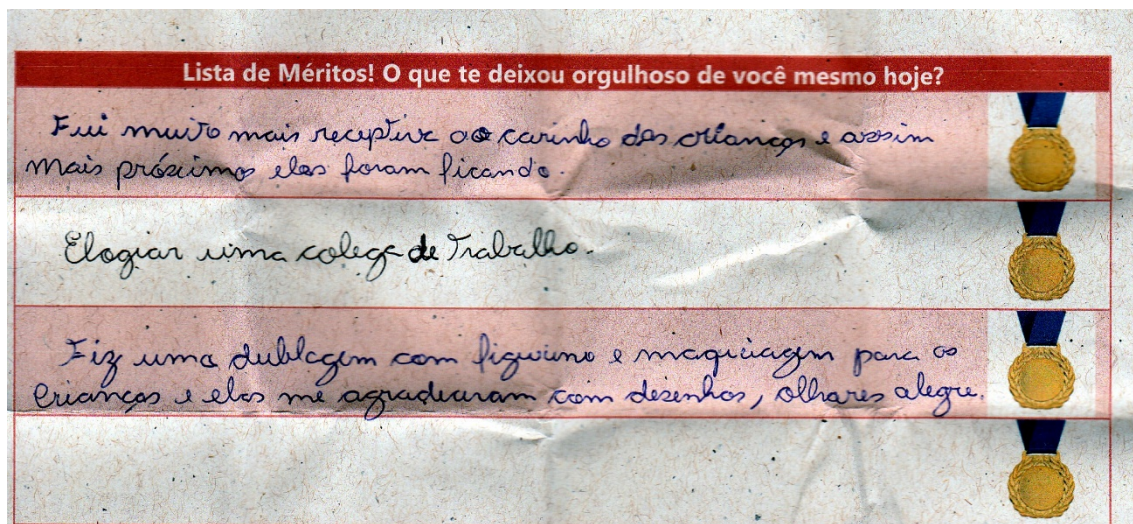 Lista de Méritos! O que te deixou orgulhoso de você mesmo hoje?
Fui muito mais receptiva ao carinho das crianças e assim
mais próximos elas foram ficando.
Elogiar uma colega de Trabalho.
Fiz uma dublagem com figurino e maquiagem para as
crianças e elas me agradeceram com desenhos, olhares alegre.